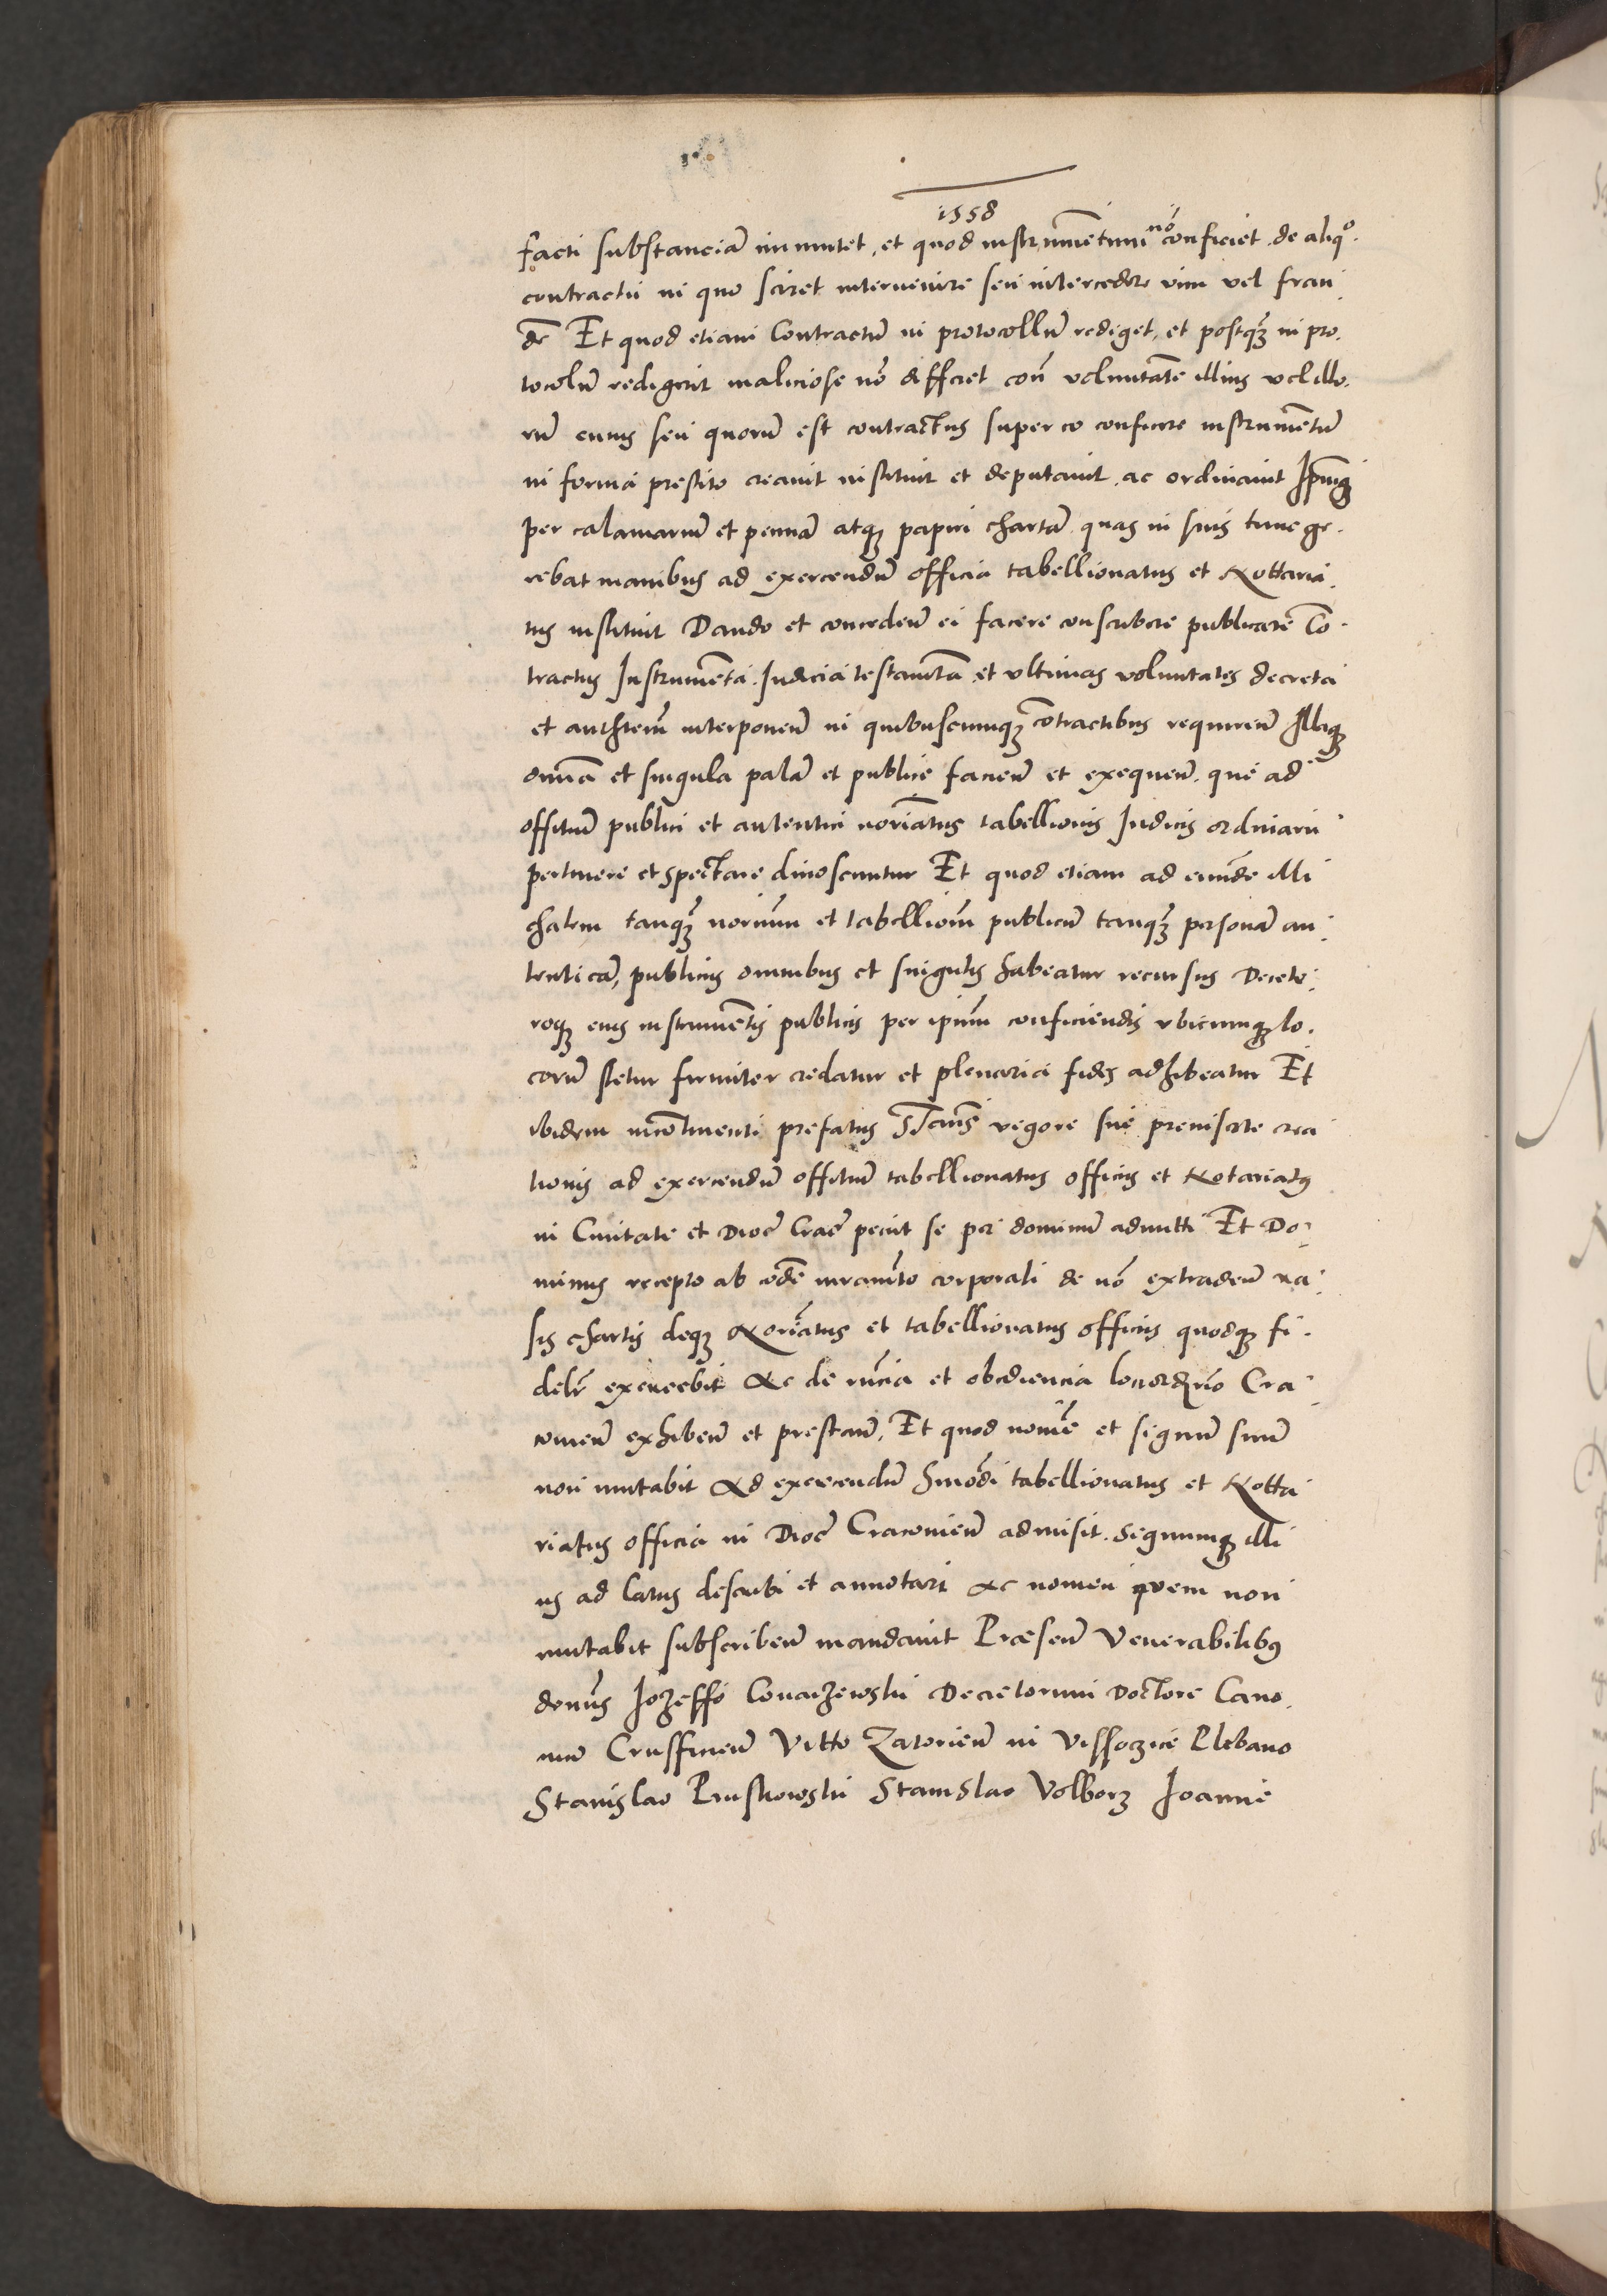 1558
facti substanciã immutet, et quod instrumentum nõ conficiet de aliqº
contractu in quo sciret intervenire seu intercedere vim vel frau
dẽ Et quod etiam Contractũ in protocollũ rediget, et postqȝ in pro
tocolũ redigerit maliciose nõ differet coñ voluntatẽ illius vel illo
rũ cuius seu quorũ est contractus super eo conficere instrumẽtũ
in forma prestito creavit instituit et deputavit ac ordinavit Ipmqȝ
per calamariũ et pennã atqȝ papiri chartã quas in suis tunc ge
rebat manibus ad exercendũ officia tabellionatus et Nottaria
tus instituit Dando et conceden̄ ei facere conscribere publicare Cõ
tractus Instrumẽta Iudicia testamẽta et ultimas voluntates decreta
et authtem̃ interponen̄ in quibuscumqȝ cõtractibus requiren̄ Illaqȝ
omnia et singula palã et publice facien̄ et exequen̄ que ad
offitiũ publici et autentici noriãtus tabellionis Iudicis ordinarii
pertinere et spectare dinoscuntur Et quod etiam ad eundẽ Mi
chalem tanqȝ norium et tabellionẽ publicũ tanqȝ personã au
tenticã, publicus omnibus et singulis habeatur recursus Decete
roqȝ eius instrumẽtis publicis per ipsum conficiendis ubicumqȝ lo
corũ stetur firmiter credatur et plenaria fides adhibeatur Et
ibidem incõtinenti prefatus vegore sue premisse crea
tionis ad exercendũ offitiũ tabellionatus officiis et Notariatus
in Civitate et Dioc̃ Crac̃ peciit se per dominũ admitti Et Do
minus recepto ab eodẽ iuramẽto corporali de nõ extraden̄ ra
sis chartis deqȝ Noriãtus et tabellionatus officiis quodqȝ fi
delr̃ exerceebit Ac de rncia et obediencia lociordrio Cra
covien̄ exhiben̄ et prestan̄, Et quod nomẽ et signũ suũ
non mutabit Ad exercendũ hmõdi tabellionatus et Notta
riatus officia in Dioc̃ Cracovien̄ admisit. Signumqȝ illi
us ad latus describi et annotari Ac nomen quem non
mutabit subscriben̄ mandavit Præsen̄ Venerabilibus
domĩs Iozeffo Decretorum Doctore Cano
nico Crusficien̄ Vitto Zatorien̄ in Vissoczice Plebano
Stanislao Pruskowski Stanislao Volborz Ioanne